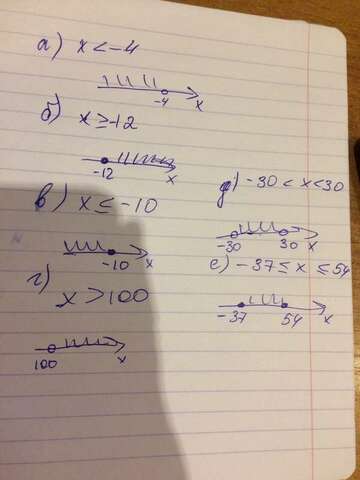 а) x < -4
-4 x
б) x ≥ -12
-12 x
в) x ≤ -10
-10 x
г) x > 100
100 x
д) -30 < x < 30
-30 30 x
е) -37 ≤ x ≤ 54
-37 54 x